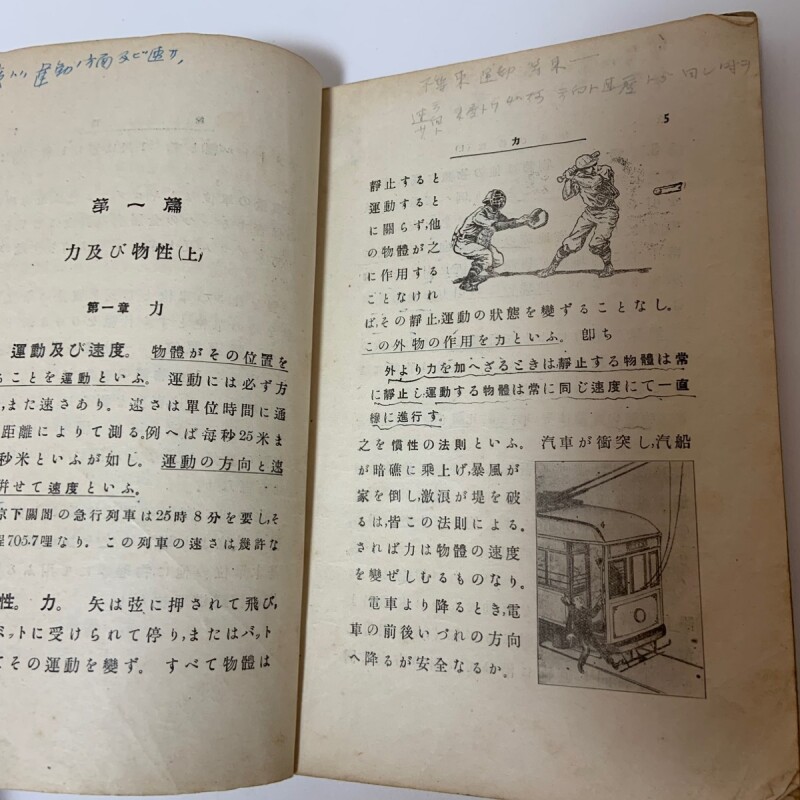 第一篇
力及び物性(上)
第一章 力
運動及び速度。 物體がその位置を
ることを運動といふ。 運動には必ず方
,また速さあり。 速さは單位時間に通
距離によりて測る。例へば每秒25米ま
秒米といふが如し。 運動の方向と速
倂せて速度といふ。
京下關間の急行列車は25時8分を要し,そ
程705.7哩なり. この列車の速さは幾許な
性。 力。 矢は弦に押されて飛び,
ミットに受けられて停り,またはバット
てその運動を變ず。 すべて物體は
5
力
靜止すると
運動すると
に關らず,他
の物體が之
に作用する
ことなけれ
ば,その靜止,運動の狀態を變ずることなし。
この外物の作用を力といふ。 卽ち
外より力を加へざるときは,靜止する物體は常
に靜止し,運動する物體は常に同じ速度にて一直
線に進行す。
之を慣性の法則といふ。 汽車が衝突し,汽船
が暗礁に乘上げ,暴風が
家を倒し,激浪が堤を破
るは,皆この法則による。
されば力は物體の速度
を變ぜしむるものなり。
電車より降るとき,電
車の前後いづれの方向
へ降るが安全なるか。